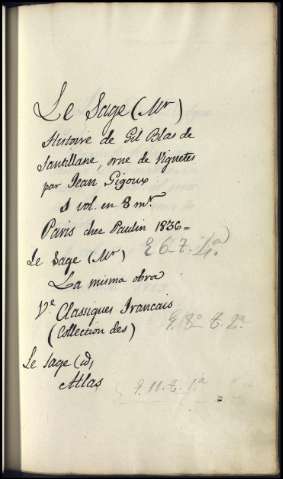 Le Sage (Mr)
Histoire de Gil Blas de
Santillane, orné de Vignetes
par Jean Gigoux
1 vol. en 8 mr.
Paris chez Paulin 1836=
E 6. t. 4ª
Le Sage (Mr)
La misma obra
Ve Classiques Francais
(Collection des)
t. 2ª
Le Sage (id)
Atlas
E. 11. t. 1ª